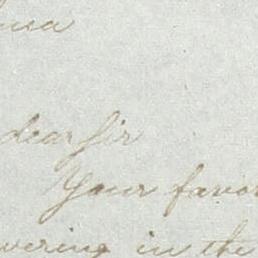 dear Sir
Your favor
wering in the